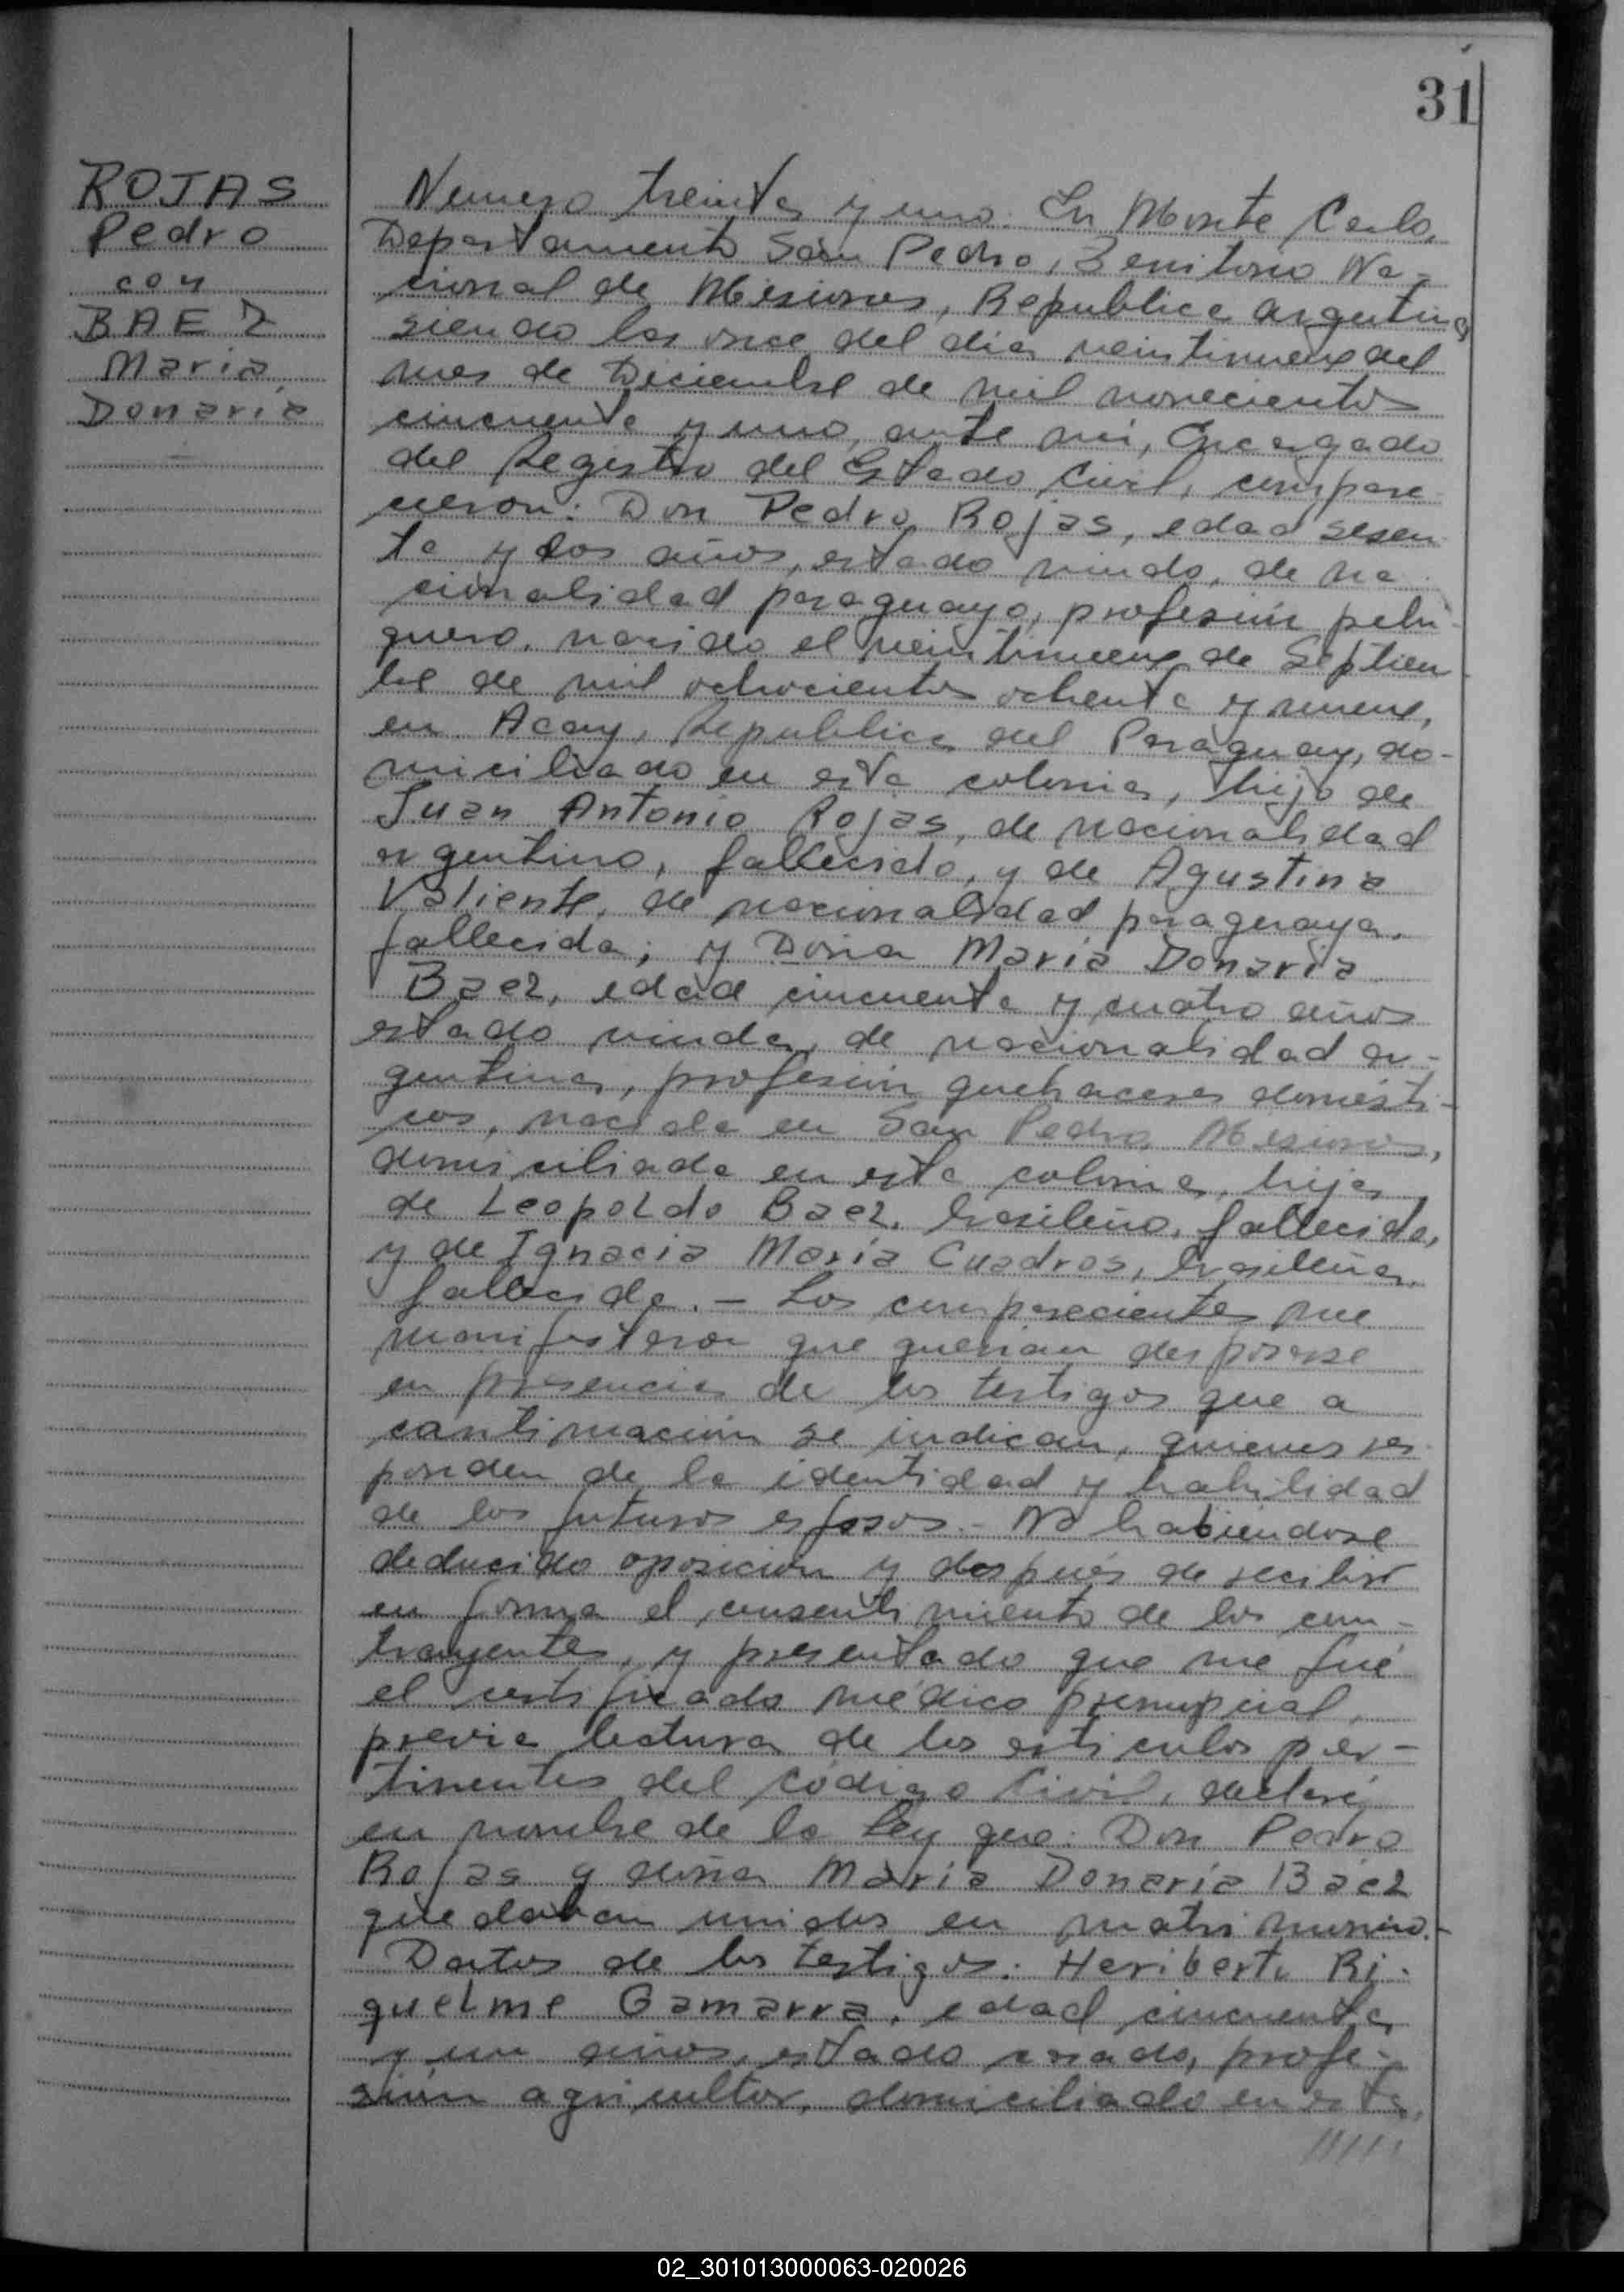 31
ROJAS
Pedro
con
BAEZ
Maria
Donaria
Numero treinta y uno. En Monte Carlo,
Departamento San Pedro, Territorio Na-
cional de Misiones, Republica Argentina
siendo las once del dia veintinueve del
mes de Diciembre de mil novecientos
cincuenta y uno, ante mi, Encargado
del Registro del Estado Civil, compare-
cieron: Don Pedro Rojas, edad sesen-
ta y dos años, estado viudo, de na-
cionalidad paraguayo, profesión pelu-
quero, nacido el veintinueve de Septiem-
bre de mil ochocientos ochenta y nueve,
en Acay, Republica del Paraguay, do-
miciliado en esta colonia, hijo de
Juan Antonio Rojas, de nacionalidad
argentino, fallecido, y de Agustina
Valiente, de nacionalidad paraguaya,
fallecida; y Doña Maria Donaria
Baez, edad cincuenta y cuatro años
estado viuda, de nacionalidad ar-
gentina, profesión quehaceres domésti-
cos, nacida en San Pedro Misiones,
domiciliada en esta colonia, hija
de Leopoldo Baez, brasileño, fallecido,
y de Ignacia María Cuadros, brasileña,
fallecida. - Los comparecientes me
manifestaron que querian desposarse
en presencia de los testigos que a
continuación se indican, quienes res-
ponden de la identidad y habilidad
de los futuros esposos. - No habiendose
deducido oposición y después de recibir
en forma el consentimiento de los con-
trayentes, y presentado que me fué
el certificado médico prenupcial,
previa lectura de los articulos per-
tinentes del Código Civil, declaré
en nombre de la Ley que: Don Pedro
Rojas y doña María Donaría Báez
quedaban unidos en matrimonio.-
Datos de los testigos: Heriberto Ri-
quelme Gamarra, edad cincuenta
y un años, estado casado, profe-
sión agricultor, domiciliado en esta,
/////
02_301013000063-020026